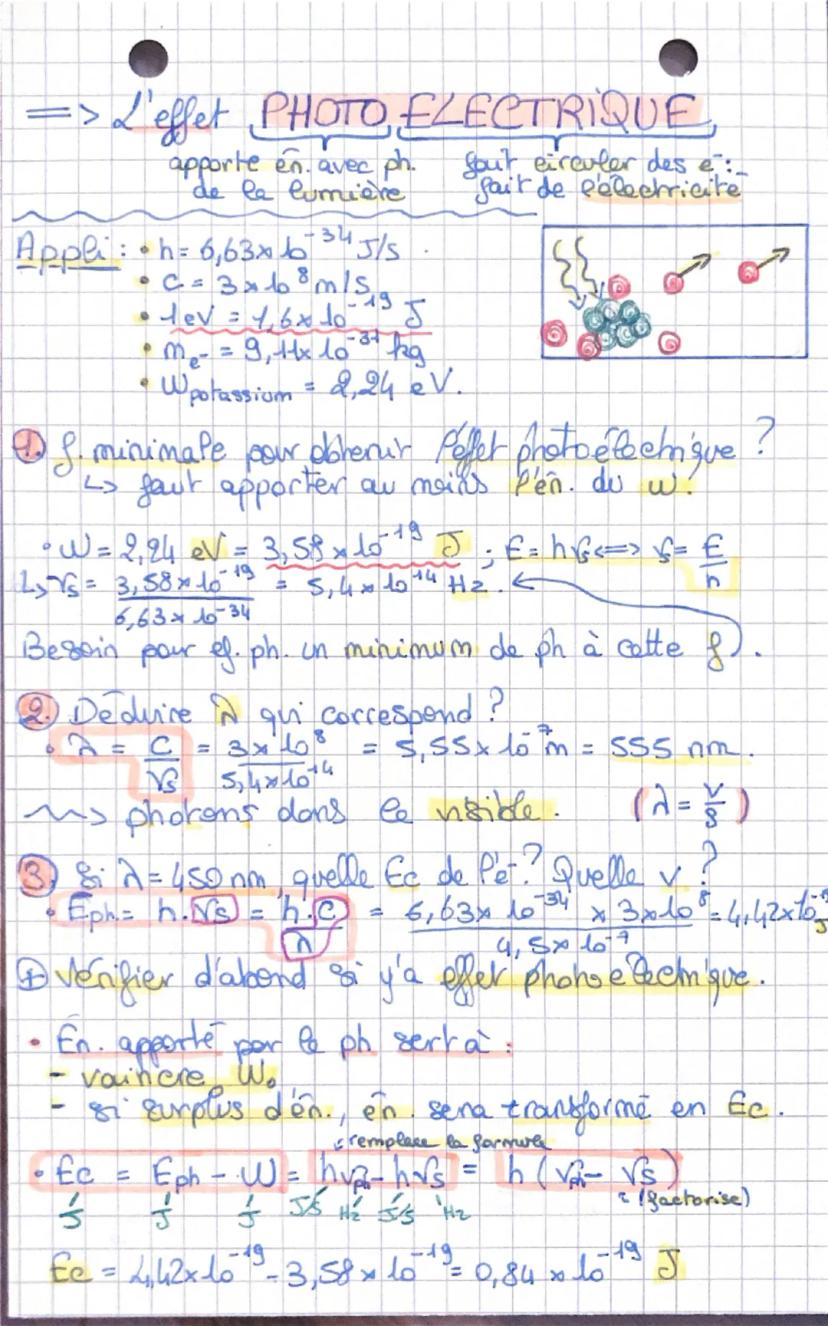 => L'effet PHOTO ELECTRIQUE
apporte én. avec ph. de la lumière
faut circuler des e⁻: fait de l'électricité
Appli : • h = 6,63 x 10⁻³⁴ J/s .
• c = 3 x 10⁸ m/s
• 1eV = 1,6 x 10⁻¹⁹ J
• mₑ₋ = 9,11 x 10⁻³¹ kg
• Wpotassium = 2,24 eV.
1. f. minimale pour obtenir l'effet photoélectrique ?
↳ faut apporter au moins l'én. du W.
• W = 2,24 eV = 3,58 x 10⁻¹⁹ J ; E = hνs <=> νs = E/h
↳ νs = 3,58 x 10⁻¹⁹ / 6,63 x 10⁻³⁴ = 5,4 x 10¹⁴ Hz.
Besoin pour ef. ph. un minimum de ph à cette f .
2. Déduire λ qui correspond ?
• λ = c/νs = 3 x 10⁸ / 5,4 x 10¹⁴ = 5,55 x 10⁻⁷ m = 555 nm.
~~> photons dans le visible. (λ = v/f)
3. Si λ = 450 nm, quelle Ec de l'e⁻? Quelle v ?
• Eph = h.νs = h.c/λ = 6,63 x 10⁻³⁴ x 3 x 10⁸ / 4,5 x 10⁻⁷ = 4,42 x 10⁻¹⁹ J
⊕ Vérifier d'abond si y'a effet photoelectrique.
• En. apporté par le ph sert à :
- vaincre W₀
- si surplus d'én., én. sera transformé en Ec.
remplace la formule
• Ec = Eph - W = hνph - hνs = h (νph - νs)
J J J J/s Hz J/s Hz (factorise)
Ec = 4,42 x 10⁻¹⁹ - 3,58 x 10⁻¹⁹ = 0,84 x 10⁻¹⁹ J